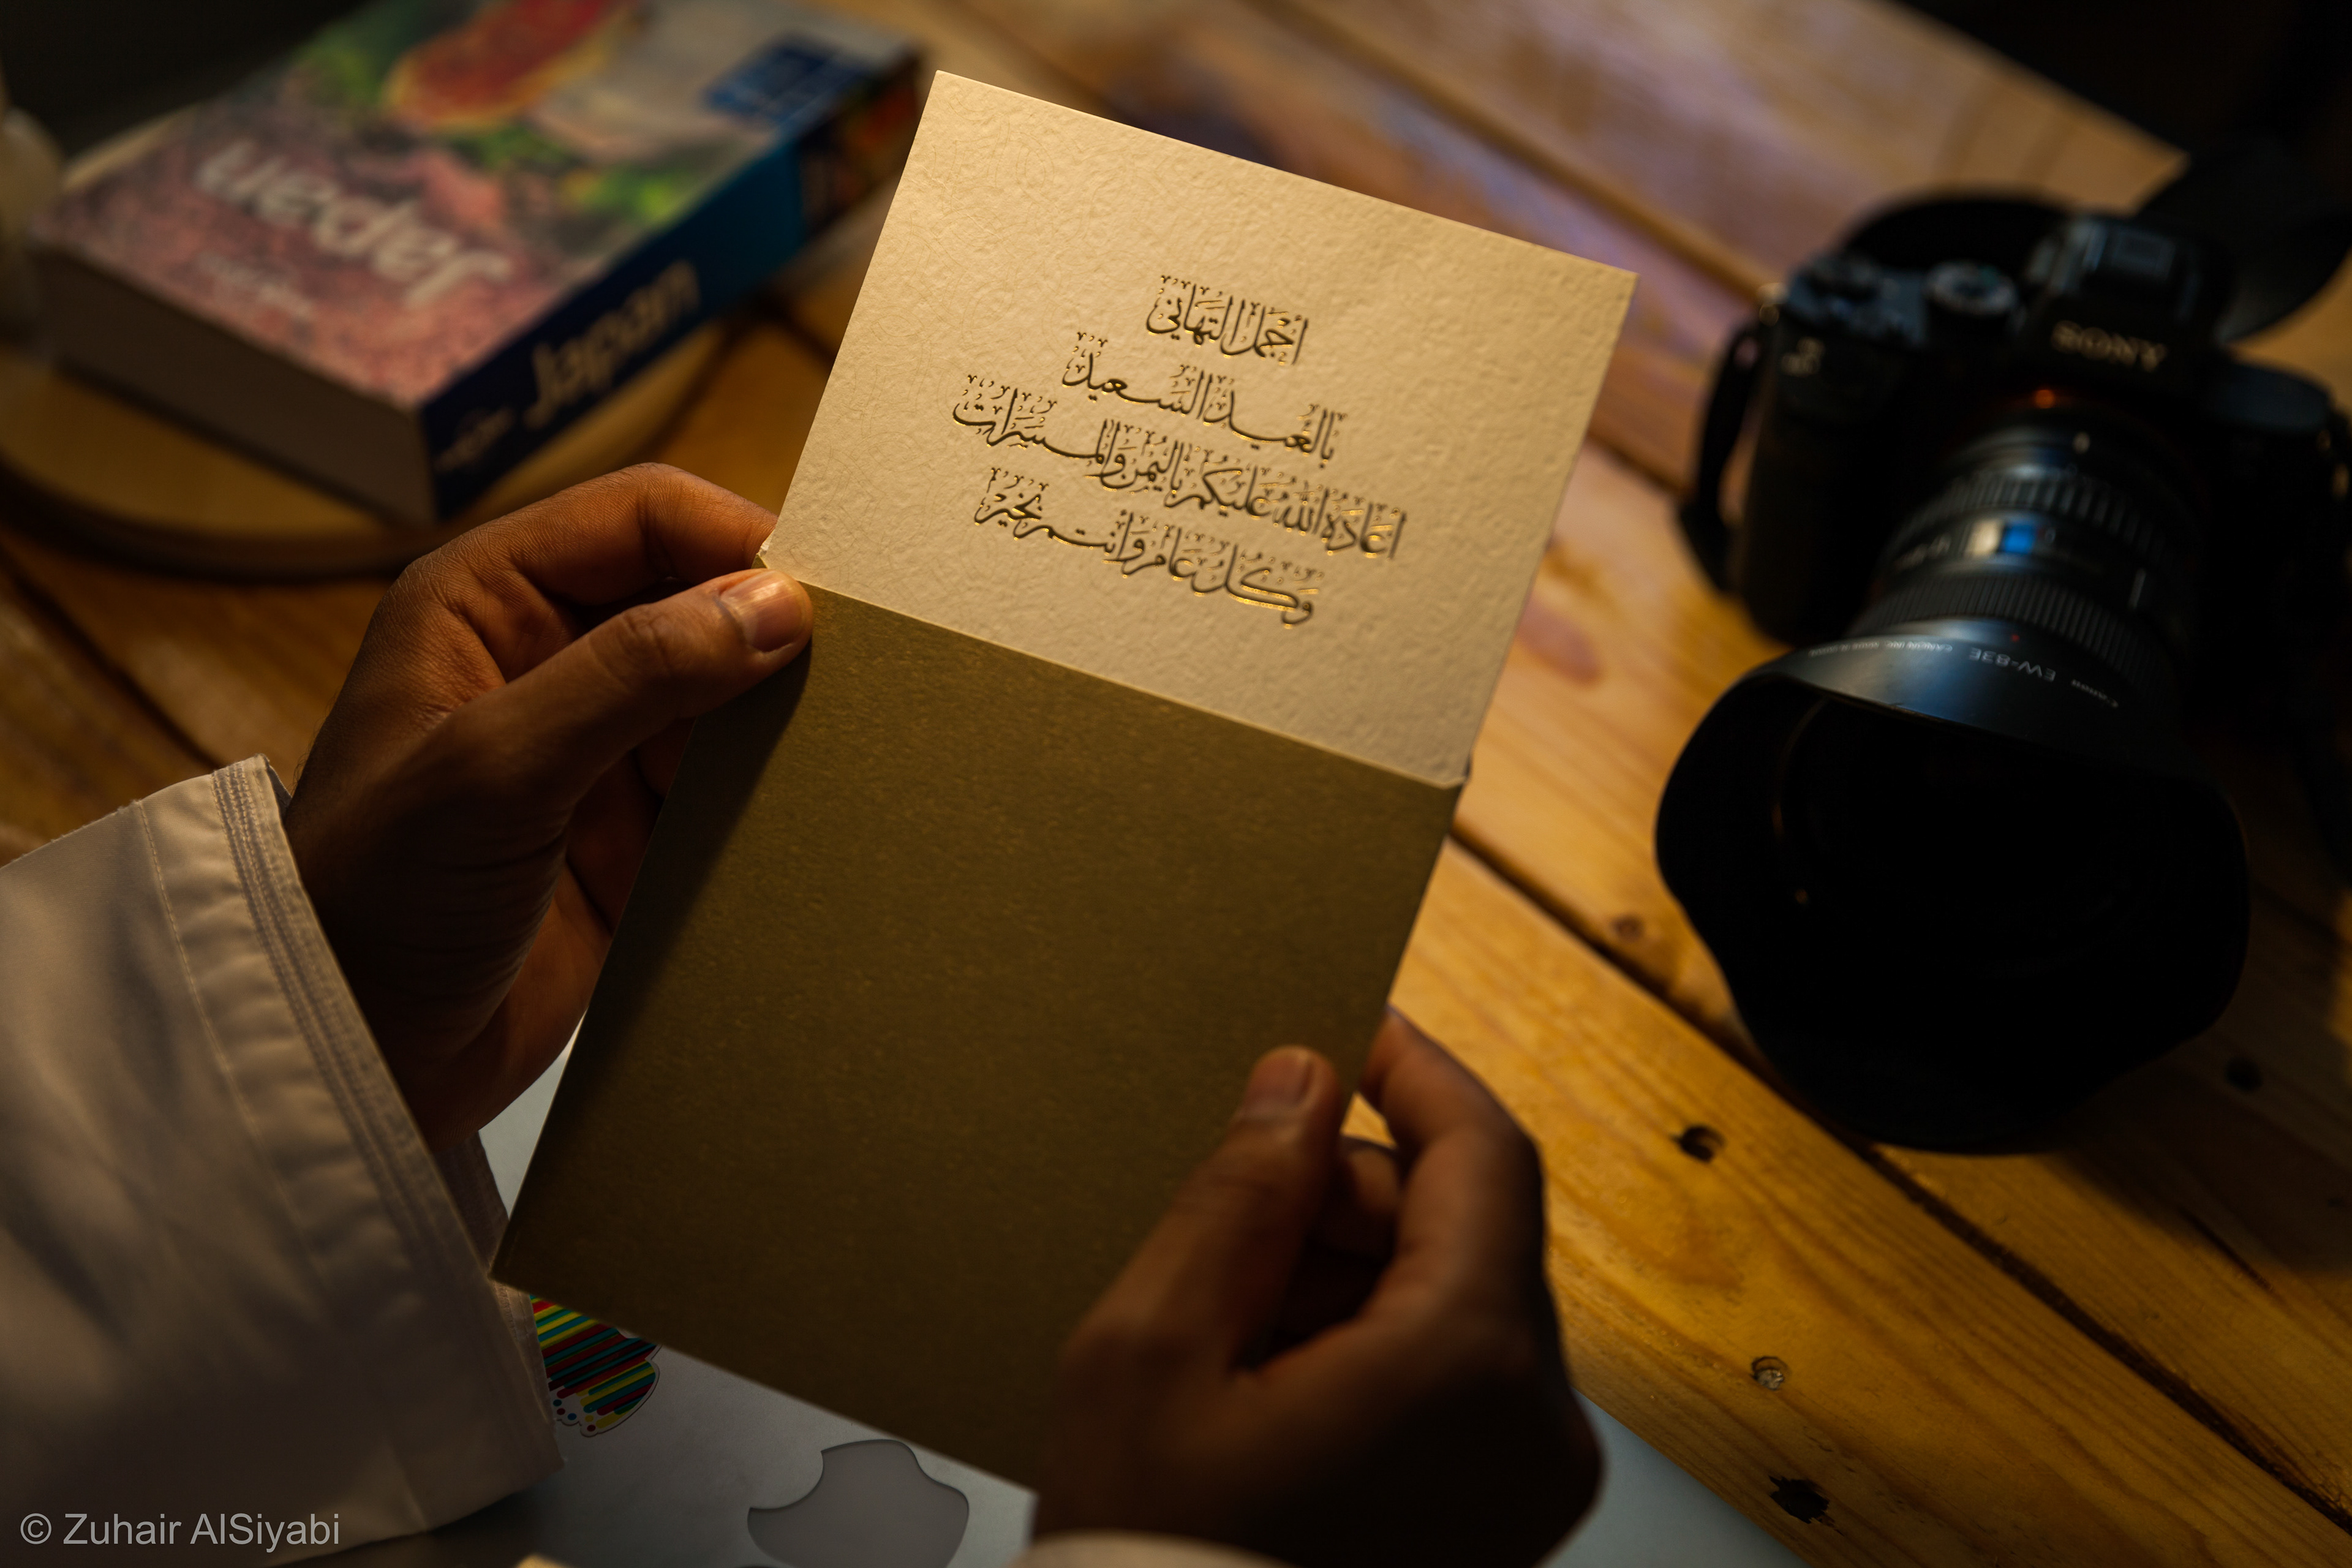 Japan
Japan
أَجْمَلُ التَّهَانِي
بِالْعِيدِ السَّعِيدِ
أَعَادَهُ اللهُ عَلَيْكُمْ بِالْيُمْنِ وَالْمَسَرَّاتِ
وَكُلُّ عَامٍ وَأَنْتُمْ بِخَيْرٍ
SONY
Canon EW-83E CANON INC.
© Zuhair AlSiyabi